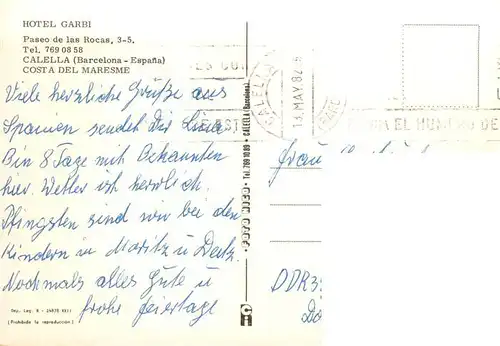 HOTEL GARBI
Paseo de las Rocas, 3-5.
Tel. 769 08 58
CALELLA (Barcelona - España)
COSTA DEL MARESME
Viele herzliche Grüße aus
Spanien sendet Dir Lina
Bin 8 Tage mit Bekannten
hier. Wetter ist herrlich.
Pfingsten sind wir bei den
Kindern in Moritz u Deutz.
Nochmals alles Gute u
frohe Feiertage
Dep. Leg. B - 24878 XXII
(Prohibida la reproducción)
FOTO - Tel. 769 10 89 - CALELLA (Barcelona)
CALELLA
13 MAY. 82
EL NUMERO DE
Frau
DDR 3